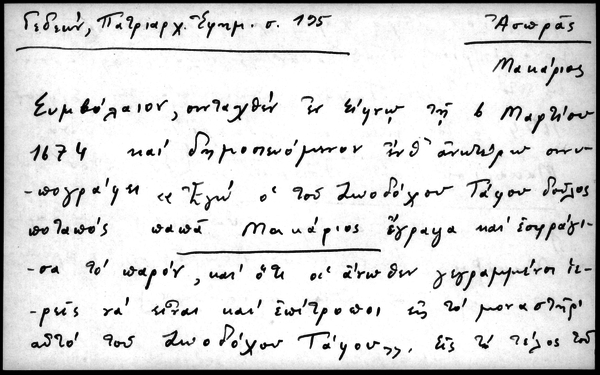 Γεδεών, Πατριαρχ. Ἐφημ. σ. 195
Ἀσπρᾶς
Μακάριος
Συμβόλαιον, συνταχθὲν ἐν τῇ 6 Μαρτίου
1674 καὶ δημοσιευόμενον ἔνθ' ἀνωτέρω συν-
-υπογράφει «Ἐγὼ ὁ τοῦ Ζωοδόχου Τάφου δοῦλος
ποταπὸς παπᾶ Μακάριος ἔγραψα καὶ ἐσφράγι-
-σα τὸ παρόν, καὶ ὅτι οἱ ἄνωθεν γεγραμμένοι ἱε-
-ρεῖς νὰ εἶναι καὶ ἐπίτροποι εἰς τὸ μοναστήρι
αὐτὸ τοῦ Ζωοδόχου Τάφου», εἰς τὸ τέλος τοῦ